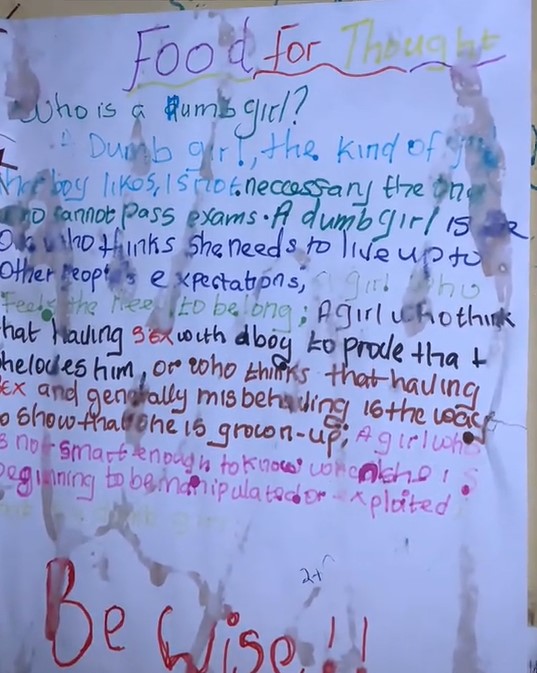 Food for Thought
Who is a Dumb girl?
A Dumb girl, the kind of girl
the boy likes, is not neccessary the one
who cannot pass exams. A dumb girl is
who thinks she needs to live up to
Other people's expectations, a girl who
Feels the need to belong; A girl who think
that having sex with a boy to prove that
she loves him, or who thinks that having
sex and generally misbehaving is the way
to show that she is grown-up; A girl who
is not smart enough to know when she is
beginning to be manipulated or exploited.
2+
Be wise!!